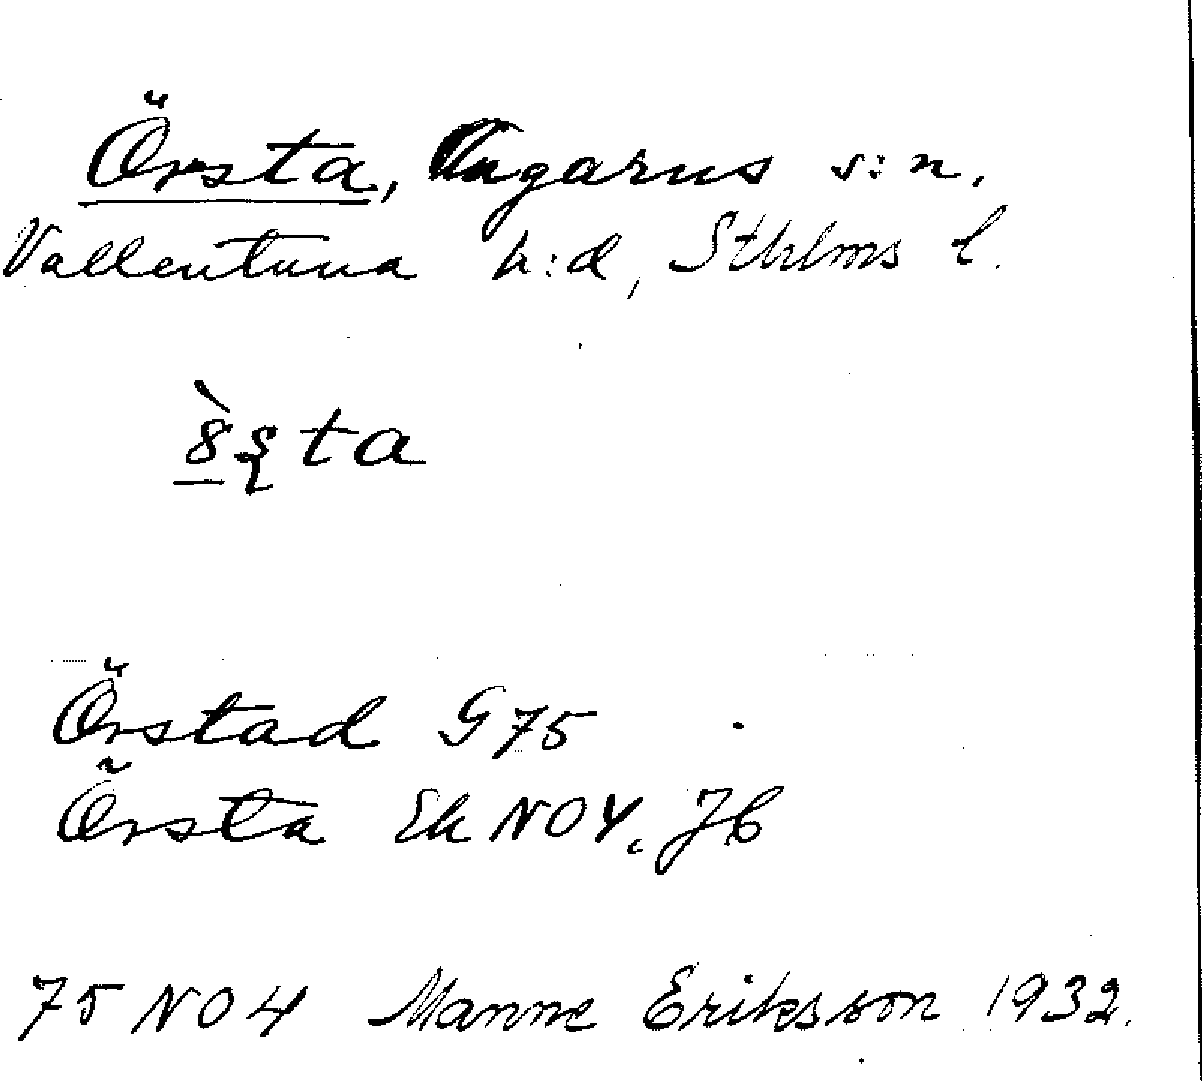 Örsta, Angarns s:n.
Vallentuna h:d, Sthlms l.
Örstad G75
Örsta Ek NO4. JB
75 NO4 Manne Eriksson 1932.